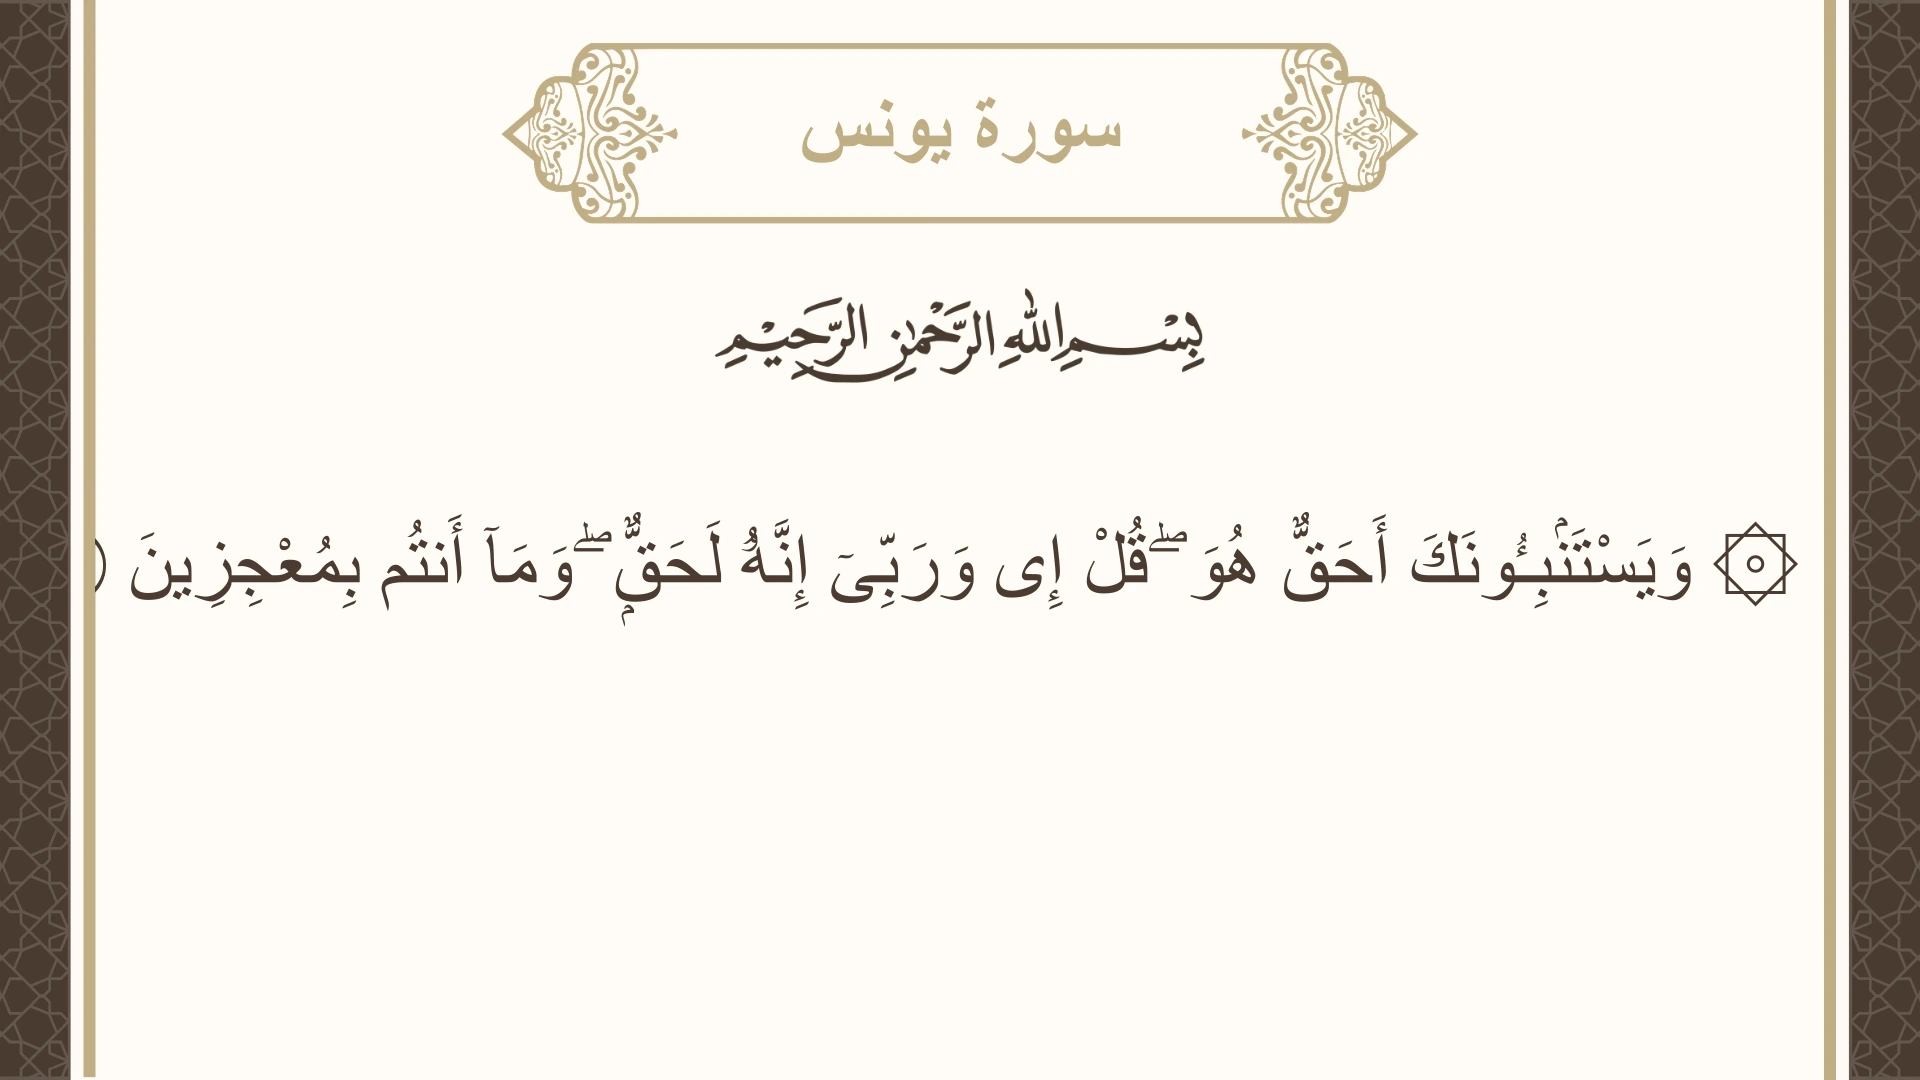 سورة يونس
بِسْمِ اللهِ الرَّحْمٰنِ الرَّحِيْمِ
۞ وَيَسْتَنۢبِـُٔونَكَ أَحَقٌّ هُوَ ۖ قُلْ إِى وَرَبِّىٓ إِنَّهُۥ لَحَقٌّۭ ۖ وَمَآ أَنتُم بِمُعْجِزِينَ (